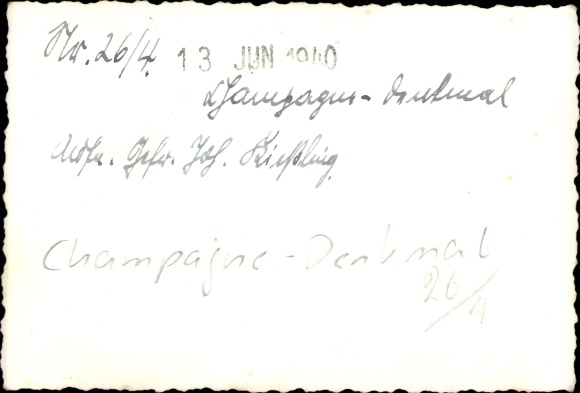 Nr. 26/4. 13 JUN 1940
Champagne-Denkmal
Gefr. Joh. Kießling
Champagne-Denkmal
26/4